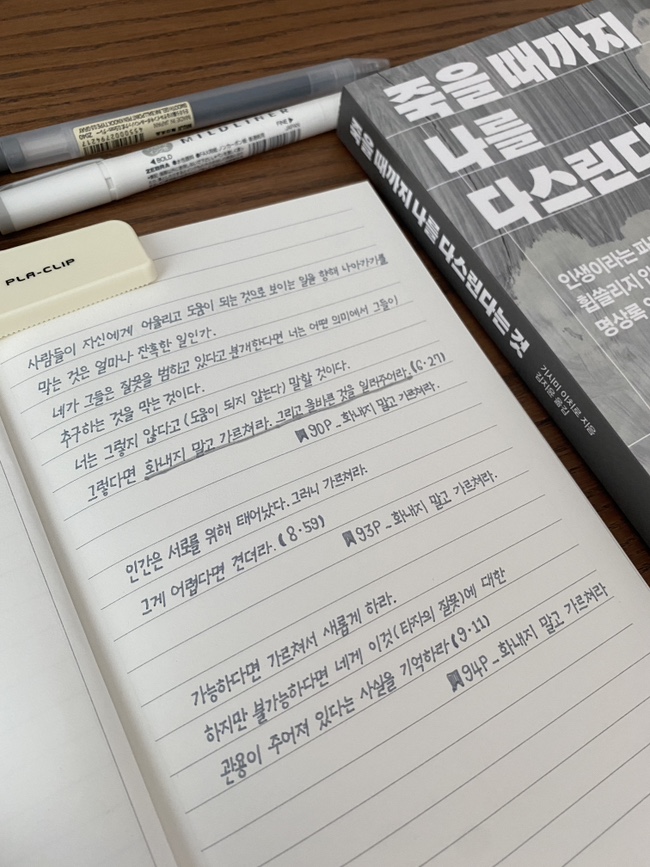 BOLD
FINE
ZEBRA
MILDLINER
JAPAN
PLA-CLIP
죽을 때까지
나를
다스린다
인생이라는
휩쓸리지
명상록
죽을 때까지 나를 다스린다는 것
기시미 이치로 지음
김지윤 옮김
사람들이 자신에게 어울리고 도움이 되는 것으로 보이는 일을 향해 나아가기를
막는 것은 얼마나 잔혹한 일인가.
네가 그들은 잘못을 범하고 있다고 분개한다면 너는 어떤 의미에서 그들이
추구하는 것을 막는 것이다.
너는 그렇지 않다고 (도움이 되지 않는다) 말할 것이다.
그렇다면 화내지 말고 가르쳐라. 그리고 올바른 것을 일러주어라. (6·27)
90P _ 화내지 말고 가르쳐라.
인간은 서로를 위해 태어났다. 그러니 가르쳐라.
그게 어렵다면 견뎌라. (8·59)
93P _ 화내지 말고 가르쳐라.
가능하다면 가르쳐서 새롭게 하라.
하지만 불가능하다면 네게 이것(타자의 잘못)에 대한
관용이 주어져 있다는 사실을 기억하라 (9·11)
94P _ 화내지 말고 가르쳐라